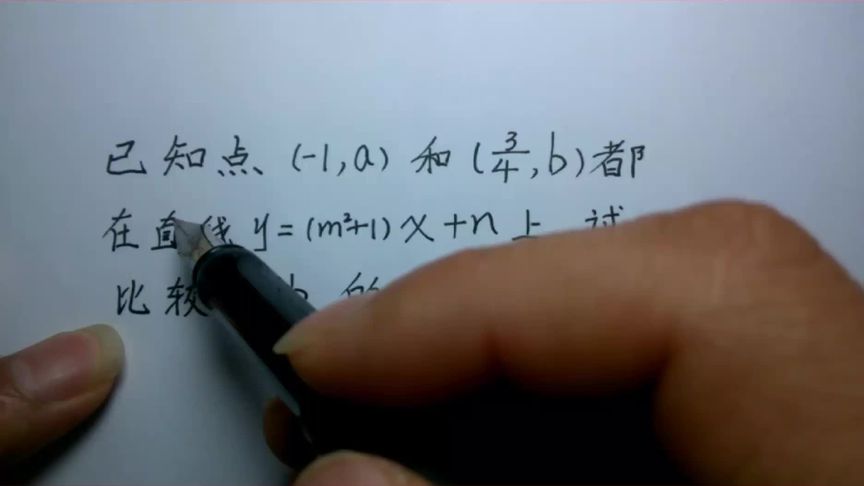 已知点(-1,a)和(3/4,b)都
在直线y=(m²+1)x+n上 试
比较 b的